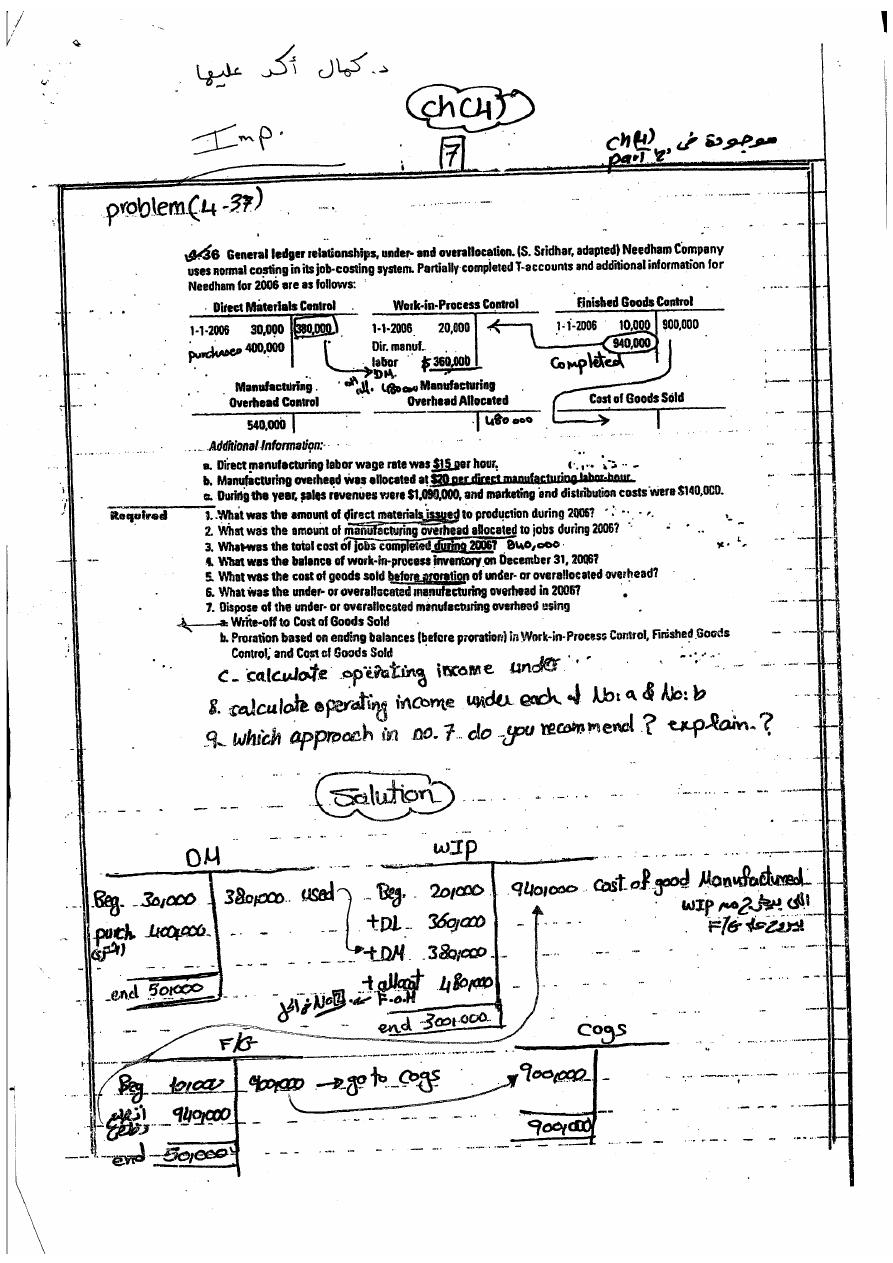 د. كمال أكد عليها
ch(4)
Imp.
7
موجودة فى ch(4)
part 2
problem(4-37)
4-36 General ledger relationships, under- and overallocation. (S. Sridhar, adapted) Needham Company
uses normal costing in its job-costing system. Partially completed T-accounts and additional information for
Needham for 2006 are as follows:
Direct Materials Control Work-in-Process Control Finished Goods Control
1-1-2006 30,000 380,000 1-1-2006 20,000 1-1-2006 10,000 900,000
purchases 400,000 Dir. manuf. 940,000
labor $ 360,000 Completed
DM.
all. 480 000
Manufacturing Manufacturing
Overhead Control Overhead Allocated Cost of Goods Sold
540,000 480 000
Additional Information:
a. Direct manufacturing labor wage rate was $15 per hour.
b. Manufacturing overhead was allocated at $20 per direct manufacturing labor-hour.
c. During the year, sales revenues were $1,090,000, and marketing and distribution costs were $140,000.
Required 1. What was the amount of direct materials issued to production during 2006?
2. What was the amount of manufacturing overhead allocated to jobs during 2006?
3. What was the total cost of jobs completed during 2006? 940,000
4. What was the balance of work-in-process inventory on December 31, 2006?
5. What was the cost of goods sold before proration of under- or overallocated overhead?
6. What was the under- or overallocated manufacturing overhead in 2006?
7. Dispose of the under- or overallocated manufacturing overhead using
a. Write-off to Cost of Goods Sold
b. Proration based on ending balances (before proration) in Work-in-Process Control, Finished Goods
Control, and Cost of Goods Sold
C- calculate operating income under
8. calculate operating income under each of No: a & No: b
9- which approach in no. 7 do you recommend? explain.?
Solution
DM WIP
Beg. 30,000 380,000 used Beg. 20,000 940,000 Cost of good Manufactured
purch 400,000 +DL 360,000 WIP
+DM 380,000 F/G
end 50,000 + allocat 480,000
F.O.H
end 300,000
F/G Cogs
Beg 10,000 900,000 → go to cogs 900,000
940,000
900,000
end 50,000